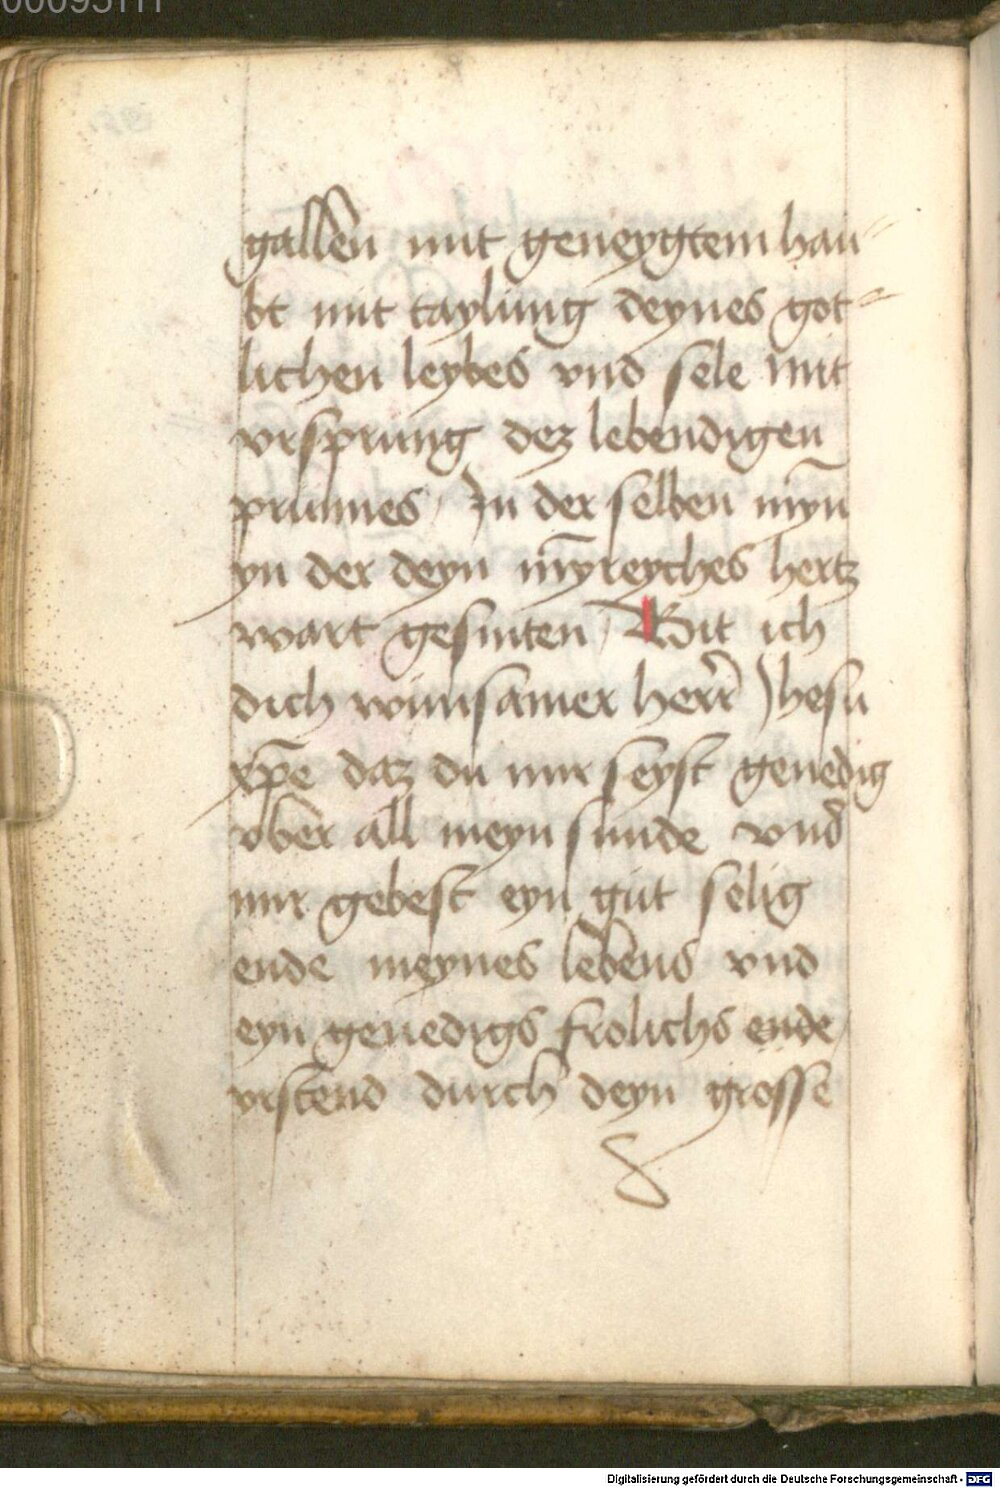 gallen mit geneygtem hau-
bt mit taylung deynes got-
lichen leybes vnd sele mit
vrsprung dez lebendigen
prunnes / In der selben myn̄
yn der deyn mȳreyches hertz
wart gesniten / Bit ich
dich wunsamer herr Jhesu
xp̄e daz du mir seyst genedig
vber all meyn sunde vnd
mir gebest eyn gut selig
ende meynes lebens vnd
eyn genedigs frolichs ende
vrstend durch deyn grosse
Digitalisierung gefördert durch die Deutsche Forschungsgemeinschaft - DFG